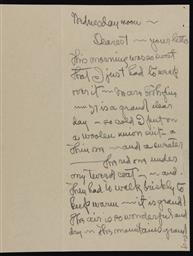 Wednesday noon ~
Dearest — your letter
this morning was so sweet
that I just had to weep
over it —
is a grand clear
day — so cold I put on
a woolen union suit a
thin — and a sweater
— this red one under
my tweed coat — and
They had to walk briskly to
keep warm — it is grand!
This air is so wonderful and
dry — this mountains grand